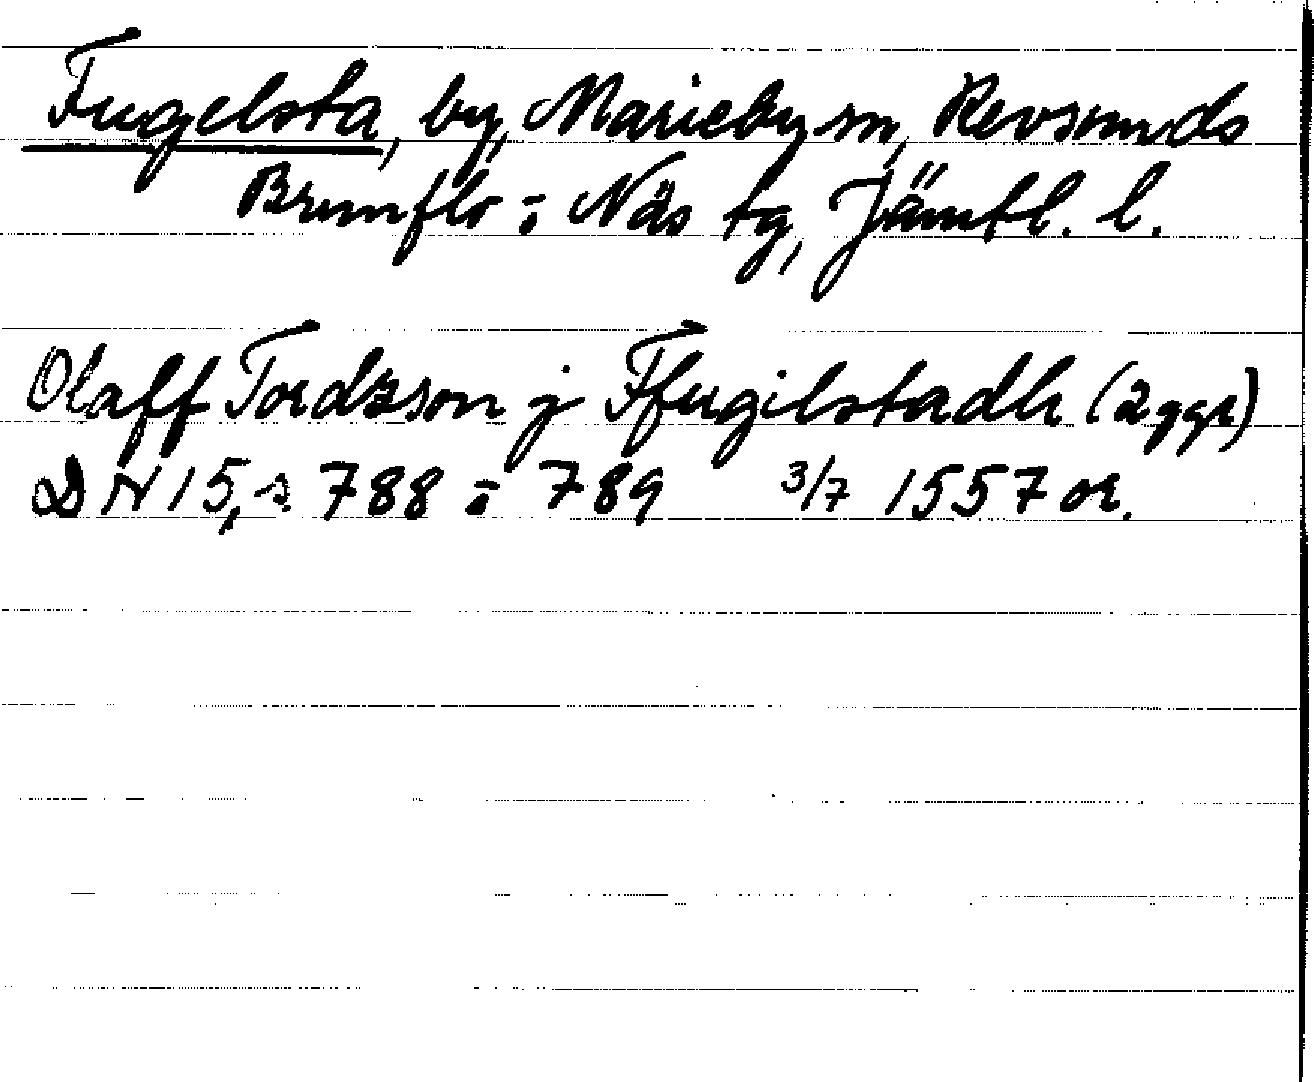 Fugelsta, by, Marieby sn, Revsunds
Brunflo o. Näs tg, Jämtl. l.
Olaff Tordzson j Ffugilstadh (2 ggr)
DN 15, s. 788 o. 789 3/7 1557 or.